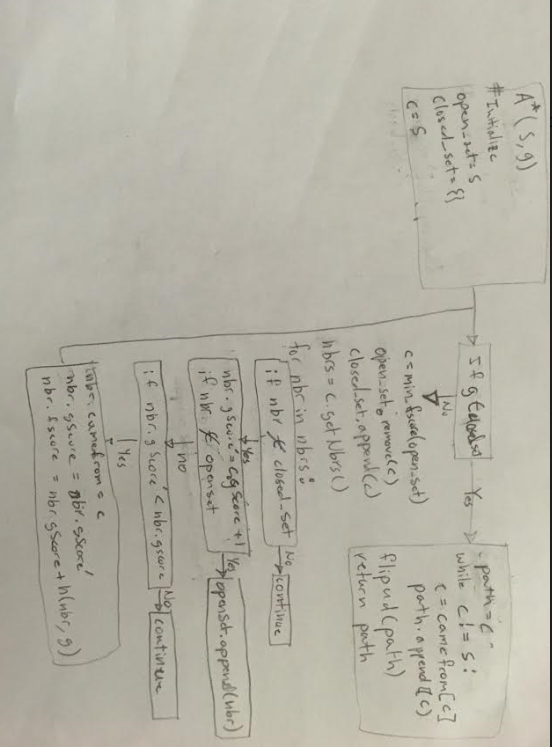 A* (s, g)
# Initialize
open_set = s
closed_set = {}
c = s
If g ∈ closed set
Yes
No
path = c
while c != s :
c = camefrom[c]
path.append(c)
flipud(path)
return path
c = min_fscore(open_set)
open_set.remove(c)
closed_set.append(c)
nbrs = c.getNbrs()
for nbr in nbrs:
if nbr ∉ closed_set
No
continue
Yes
nbr.gscore' = c.gscore + 1
if nbr ∉ openset
Yes
openset.append(nbr)
no
if nbr.gscore' < nbr.gscore
No
continue
Yes
nbr.camefrom = c
nbr.gscore = nbr.gscore'
nbr.fscore = nbr.gscore + h(nbr, g)